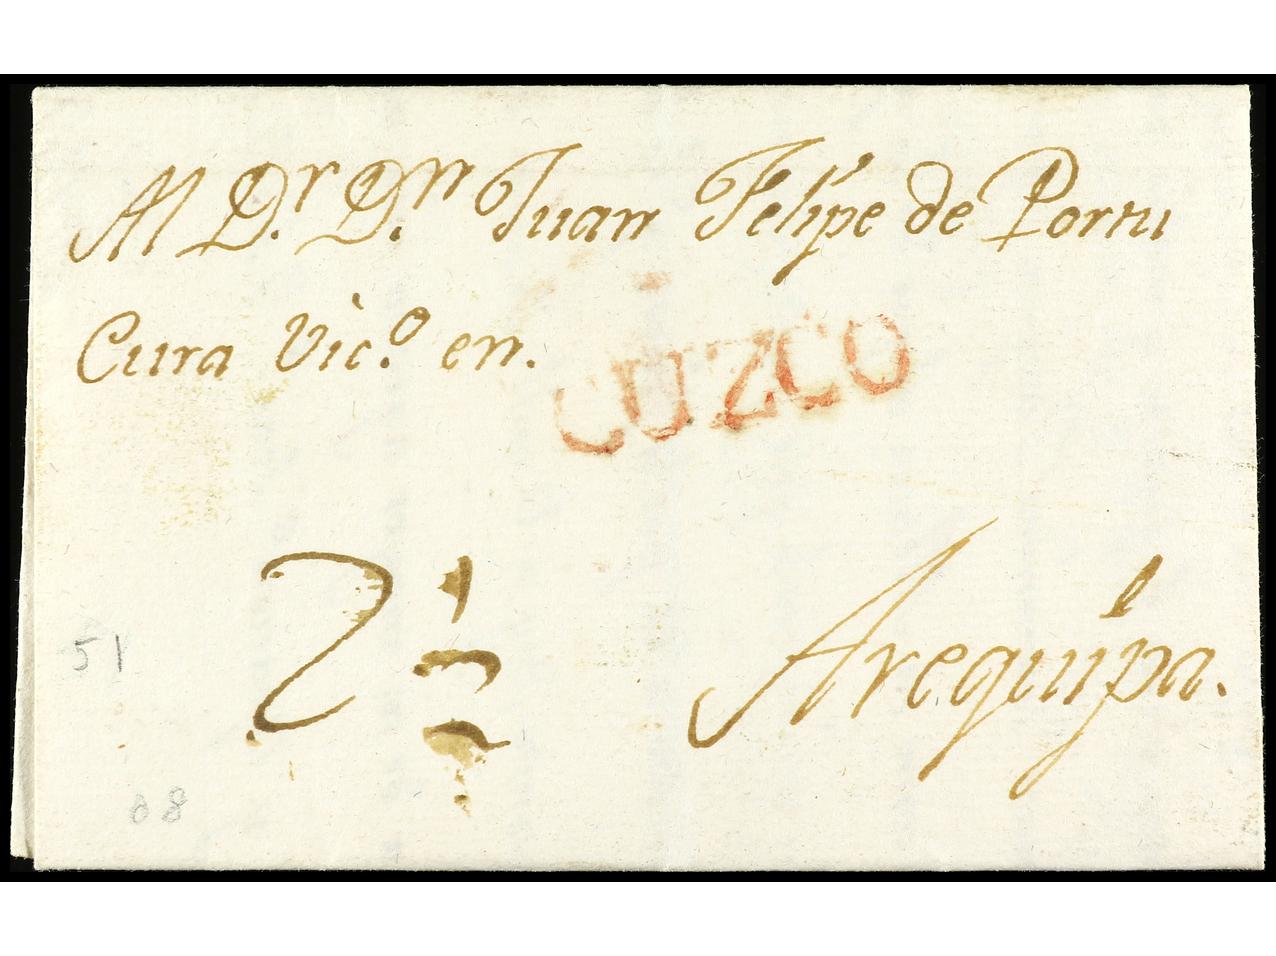 Al D.r D.n Juan Felipe de Portu
Cura Vic.o en.
CUZCO
2½
Arequipa.
51
88